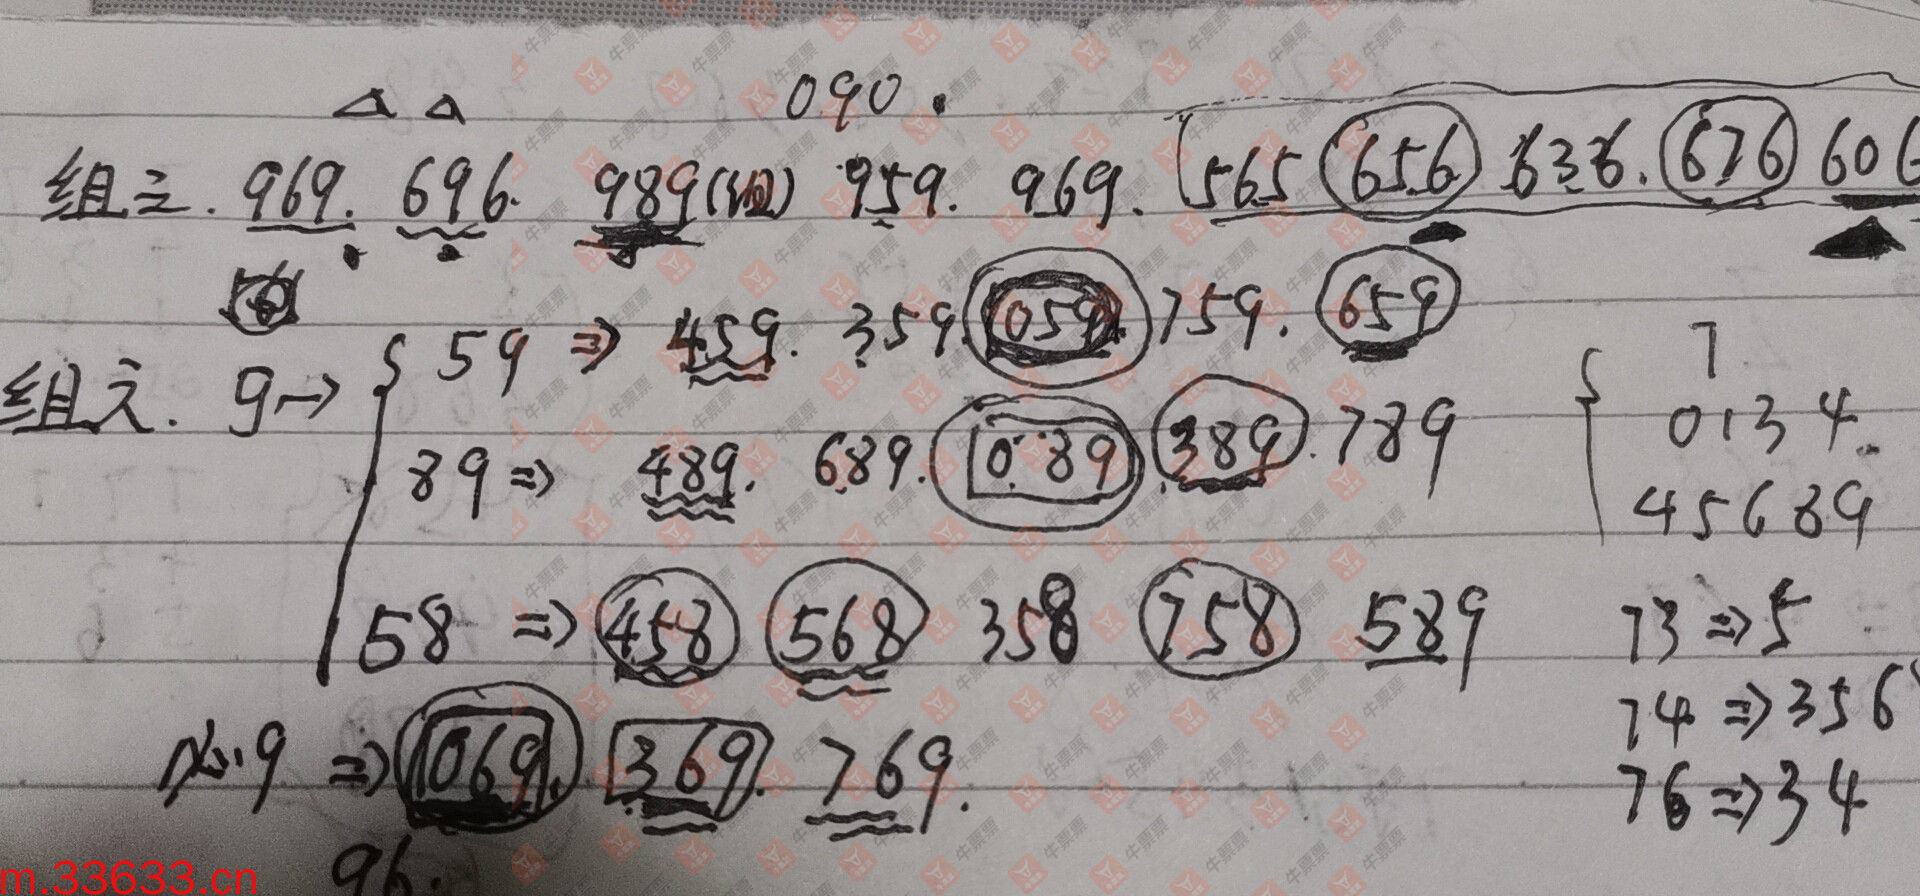 090.
组三. 969. 696. 989 959. 969. 565 656 636. 676 606
组六. 9→ 59⇒ 459. 359. 059. 759. 659
89⇒ 489. 689. 089 389. 789
58⇒ 458 568 358 758 589
9⇒ 069. 369. 769.
96.
7
0134
45689
73⇒5
74⇒356
76⇒34
牛票票
m.33633.cn